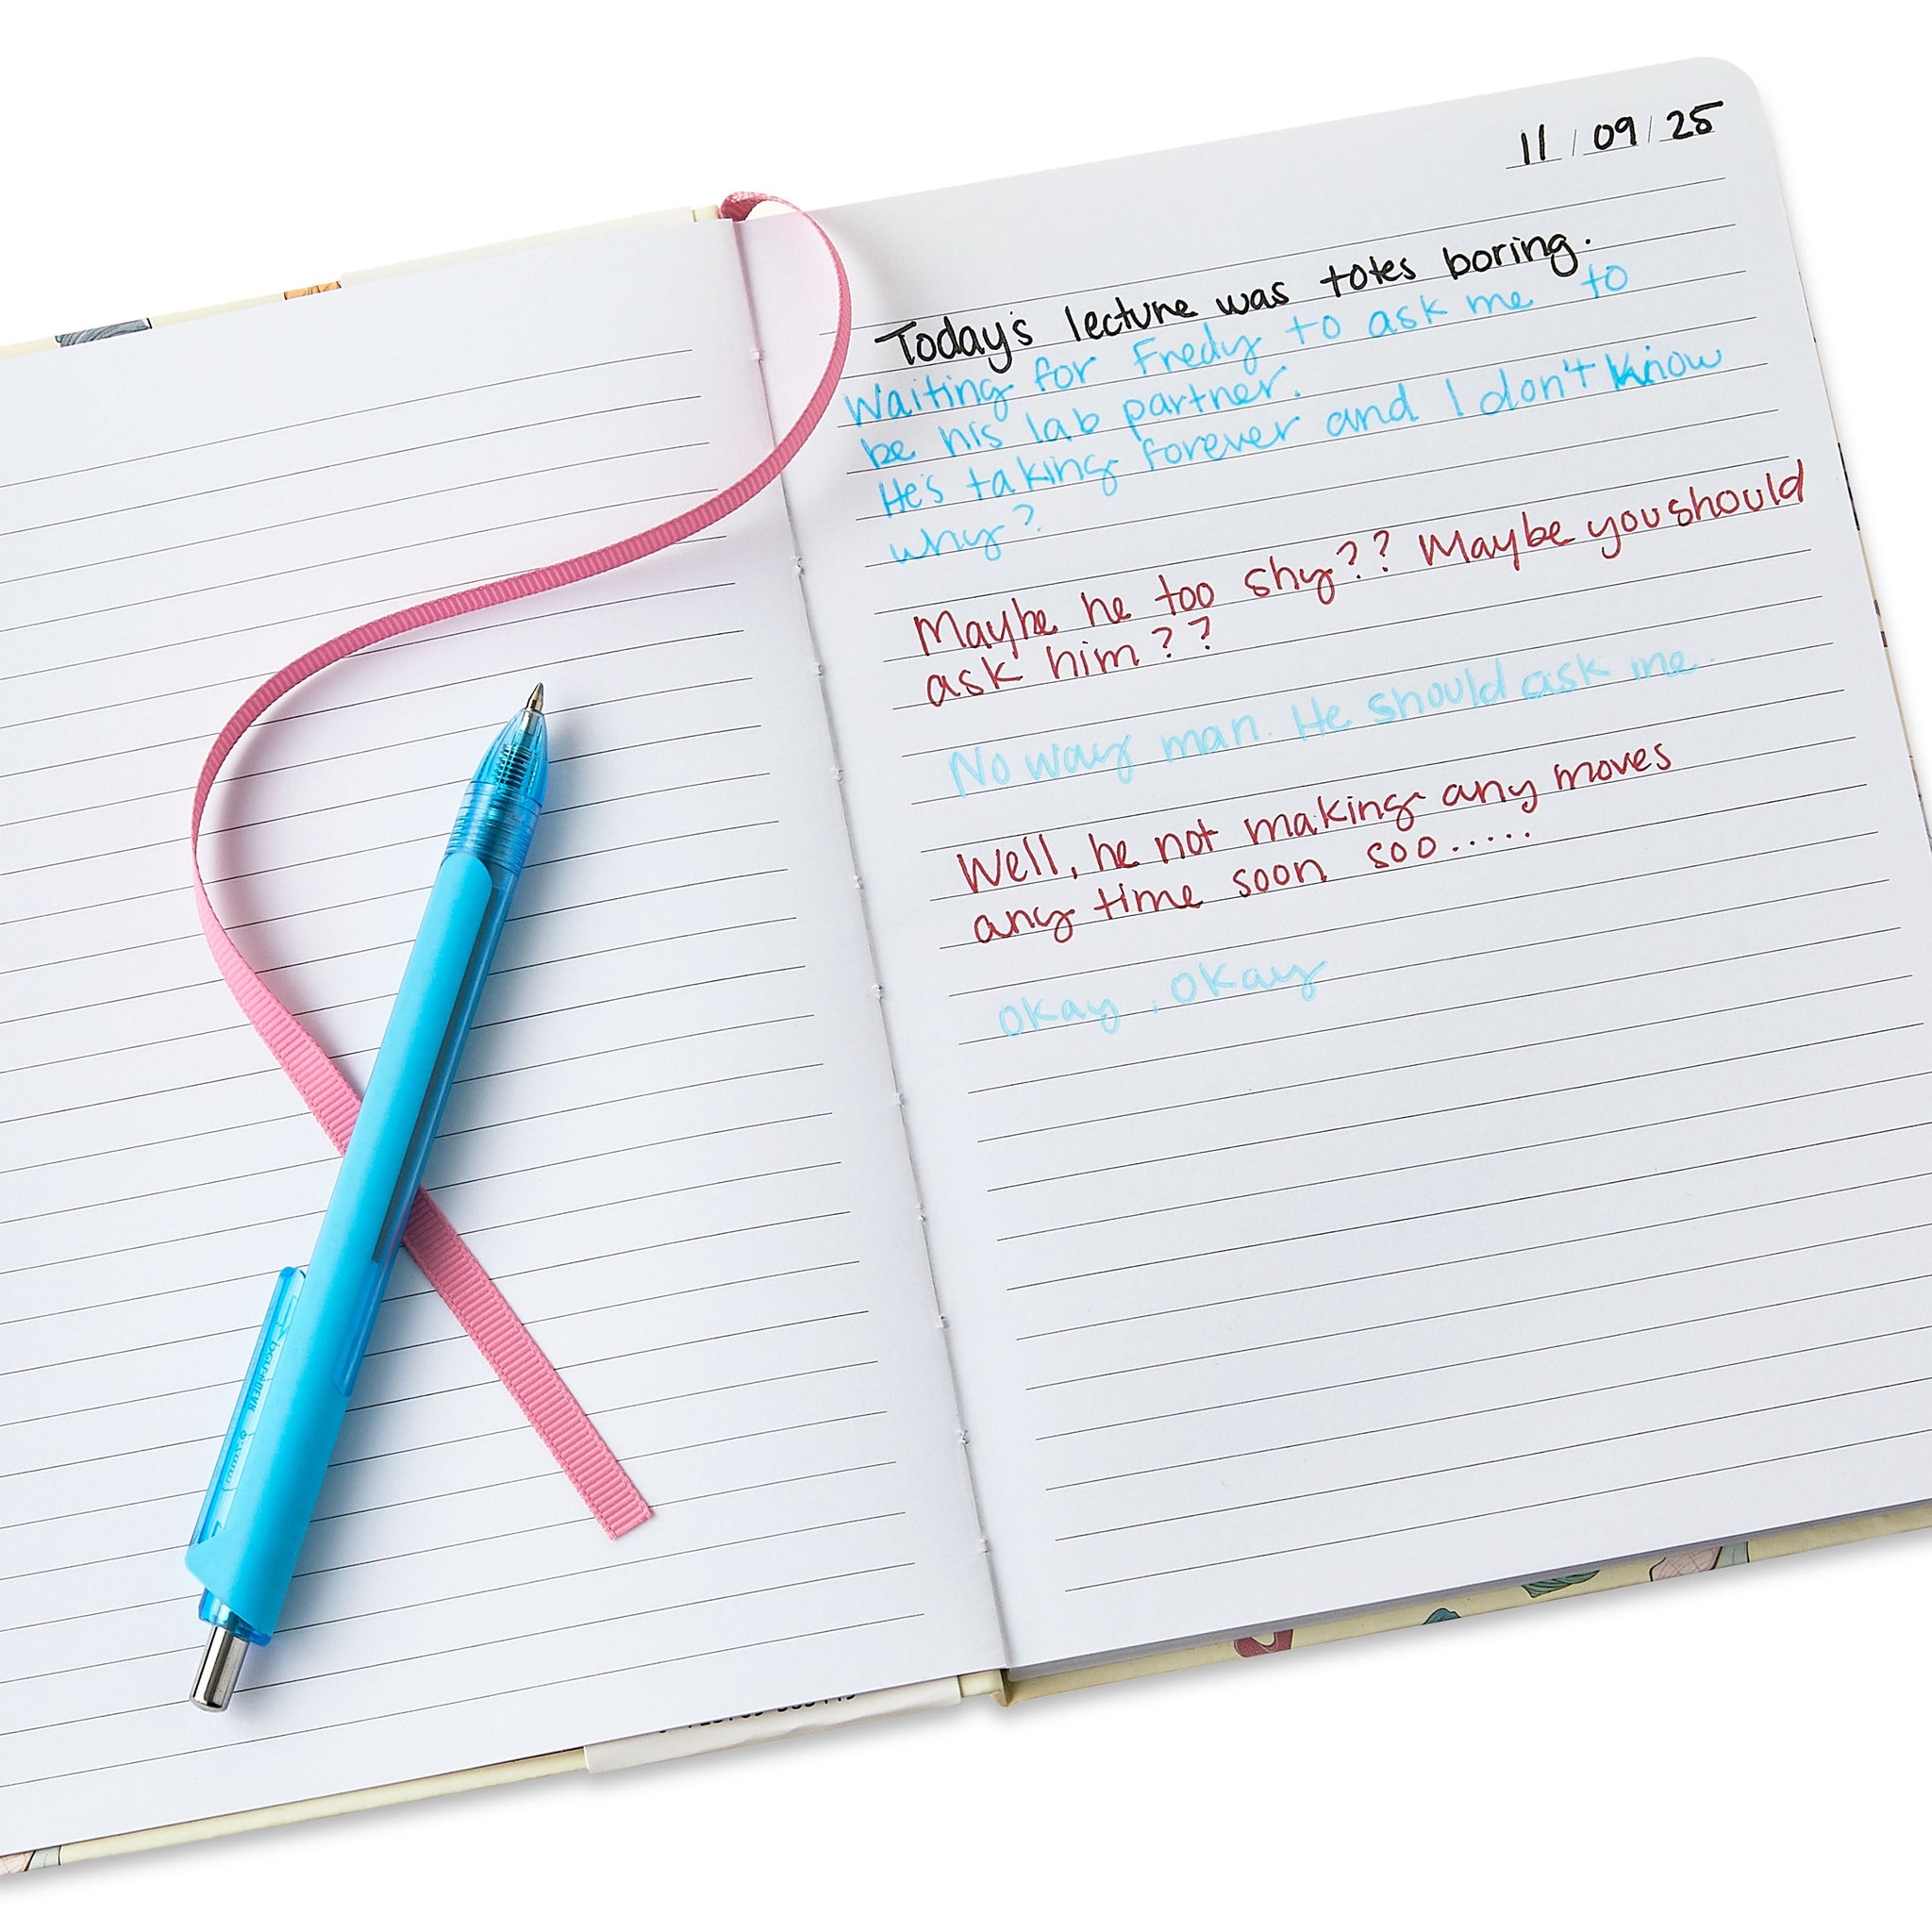 11/09/25
Today's lecture was totes boring.
Waiting for Fredy to ask me to
be his lab partner.
He's taking forever and I don't know
why?
Maybe he too shy?? Maybe you should
ask him??
No way man. He should ask me.
Well, he not making any moves
any time soon soo.....
okay, okay